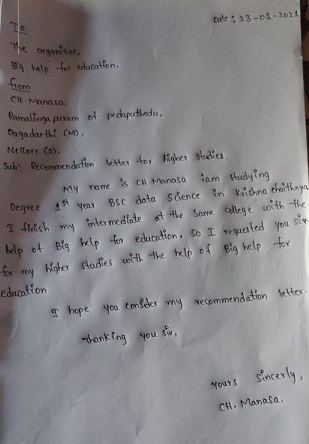 Date : 23-01-2021
To
The organiser,
Big help for education.
from
CH-Manasa,
Ramalingapuram of pedaputhedu,
Dagadarthi (M),
Nellore (D).
Sub: Recommendation letter for Higher Studies.
My name is CH Manasa iam studying
Degree 1st year BSC data Science in Krishna chaithanya
I finish my intermediate at the same college with the
help of Big help for education. So I requested you sir
for my higher Studies with the help of Big help for
education
I hope you consider my recommendation letter.
Thanking you sir,
yours Sincerely,
CH. Manasa.